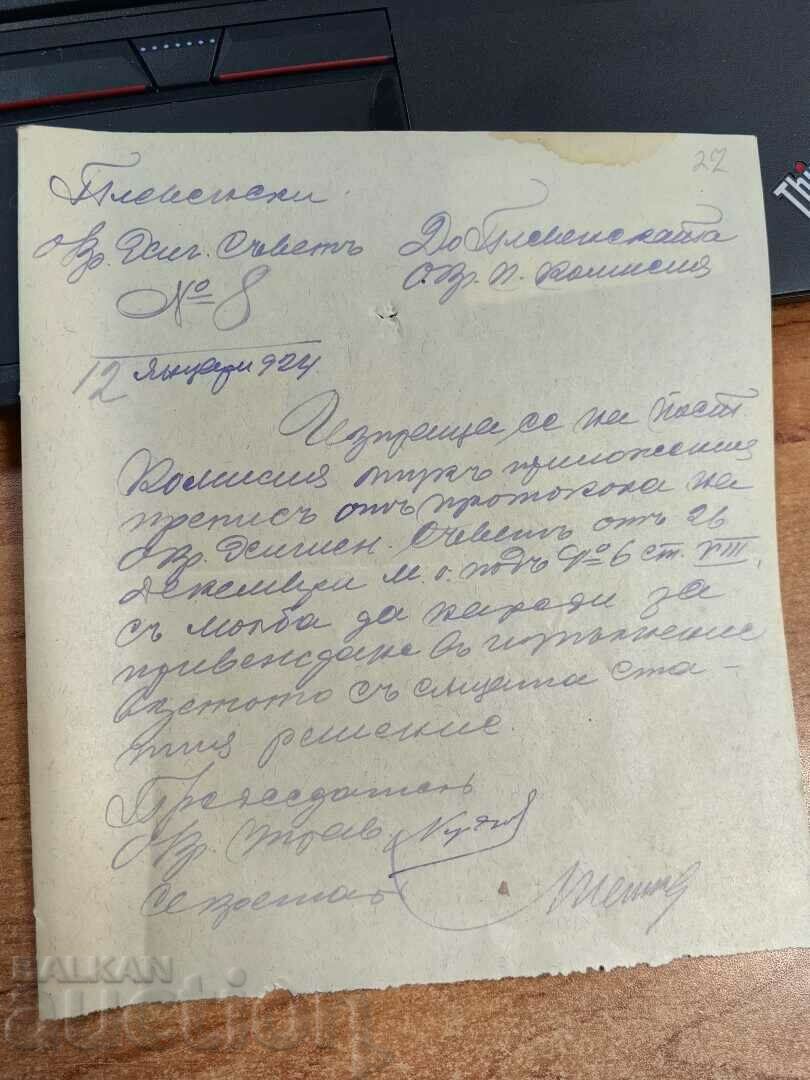 27
Плевенски
Окр. Хиг. Съветъ
№ 8
12 Януари 924
До Плевенската
Окр. П. Комисия
Изпраща се на пост.
Комисия тукъ приложения
преписъ отъ протокола на
Окр. Хигиен. Съветъ отъ 26
Декемврий м. г. подъ № 6 ст. VIII,
съ молба да нареди за
привеждане въ изпълнение
взетото съ същата ста-
тия решение.
Председатель
Окр.
Секретар
Thi
BALKAN
auction